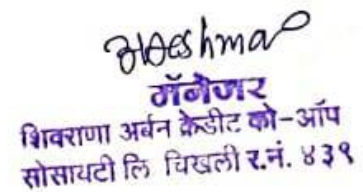 मॅनेजर
शिवराणा अर्बन क्रेडीट को-ऑप
सोसायटी लि चिखली र.नं. ४३९